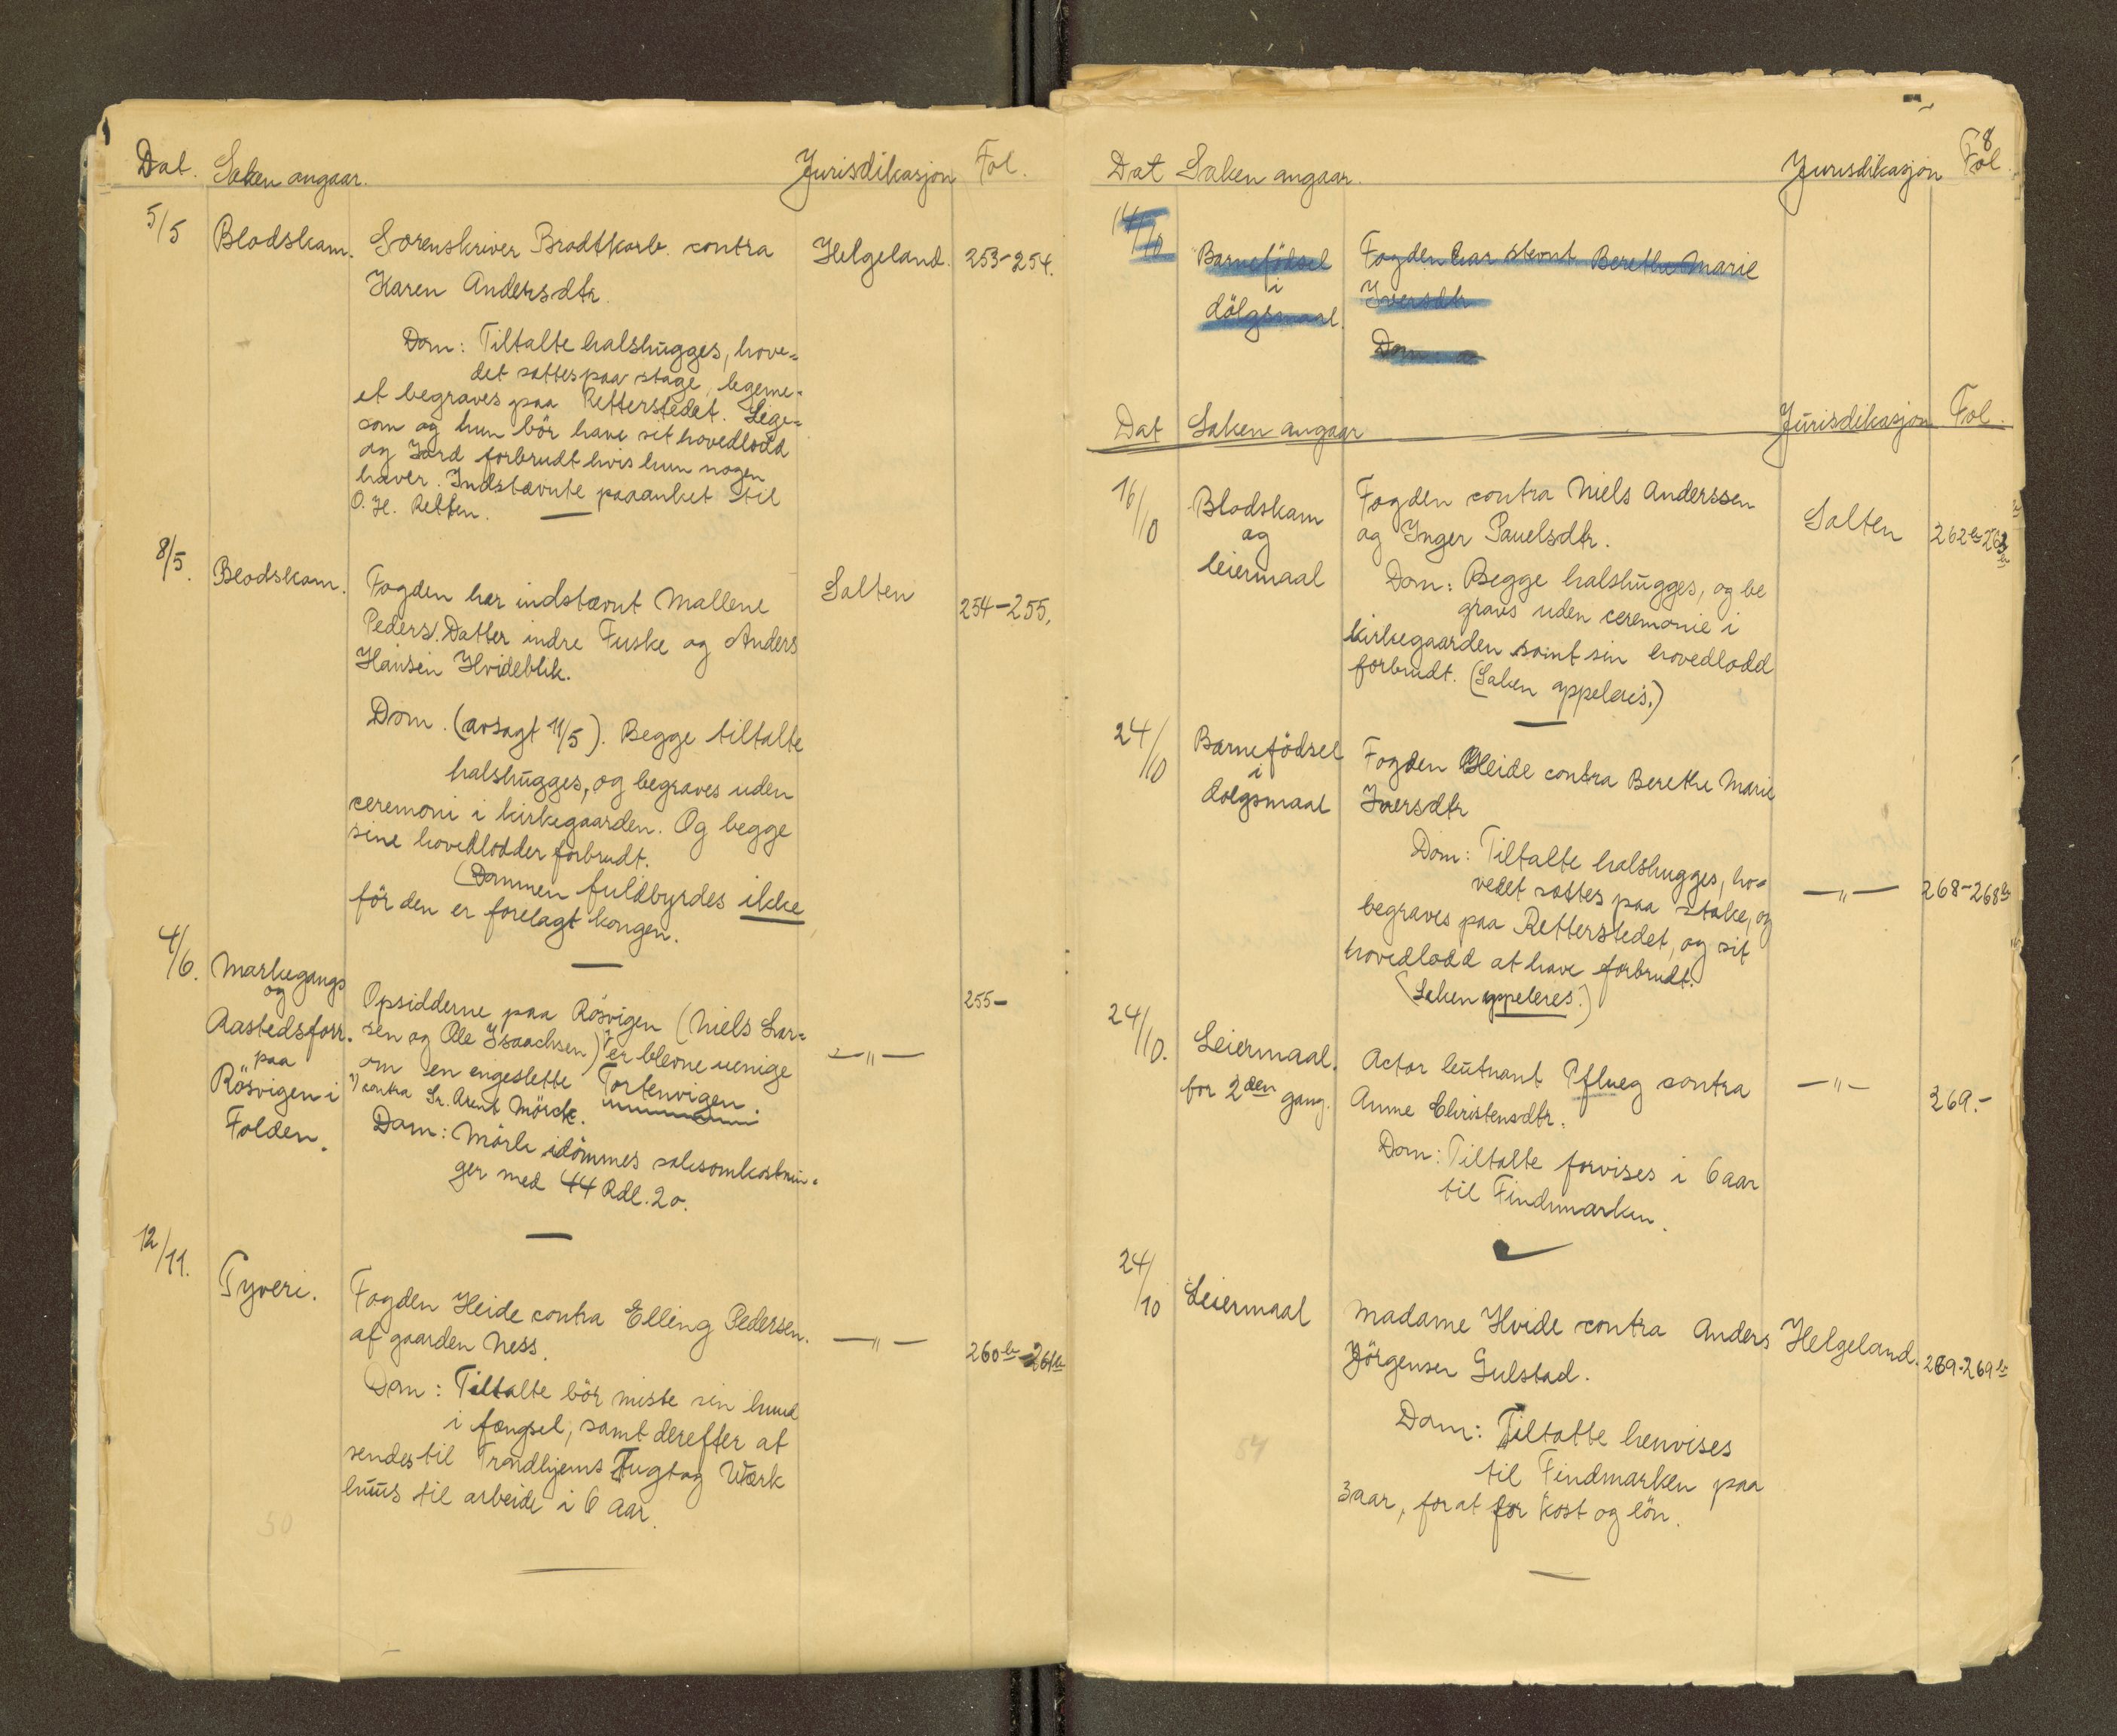 Dat. Saken angaar. Jurisdikasjon Fol.
5/5 Blodskam. Sorenskriver Brodtkorb contra Helgeland. 253-254.
Karen Andersdtr.
Dom: Tiltalte halshugges, hove-
det sættes paa stage, legeme-
et begraves paa Retterstedet. Lige-
som og hun bör have sit hovedlodd
og Jord forbrudt hvis hun nogen
haver. Indstævnte paaanket til
O. H. Retten.
8/5. Blodskam. Fogden har indstævnt Mallene Salten 254-255,
Peders. Datter indre Fuske og Anders
Hansen Hvideblik.
Dom. (avsagt 11/5). Begge tiltalte
halshugges, og begraves uden
ceremoni i kirkegaarden. Og begge
sine hovedlodder forbrudt.
(Dommen fuldbyrdes ikke
för den er forelagt kongen.
4/6. Markegangs
og
Aastedsforr.
paa
Rösvigen i
Folden.
Opsidderne paa Rösvigen (Niels Lar- 255-
sen og Ole Isaachsen) er blevne uenige —"—
om en engeslette Tortenvigen.
contra Sr. Arent Mörck.
Dom: Mörk idömmes saksomkostnin-
ger med 44 Rdl. 20.
12/11. Tyveri. Fogden Heide contra Elling Pedersen. —"— 260b-261b
af gaarden Ness.
Dom: Tiltalte bör miste sin huud
i fængsel, samt derefter at
sendes til Trondhjems Tugt og Værk
huus til arbeide i 6 aar.
50
8
Dat Saken angaar. Jurisdikasjon Fol.
14/10 Barnefödsel
i
dölgsmaal.
Fogden har stevnt Berethe Marie
Iversdtr
Dom:
Dat Saken angaar Jurisdikasjon Fol.
16/10 Blodskam
og
leiermaal
Fogden contra Niels Anderssen Salten 262b-263
og Inger Pauelsdtr.
Dom: Begge halshugges, og be
graves uden ceremonie i
kirkegaarden samt sin hovedlodd
forbrudt. (Saken appeleres.)
24/10 Barnefödsel
i
dolgsmaal
Fogden Heide contra Berethe Marie
Iversdtr
Dom: Tiltalte halshugges, ho-
vedet sættes paa stake, og —"— 268-268b
begraves paa Retterstedet, og sit
hovedlodd at have forbrudt.
(Saken appeleres.)
24/10. Leiermaal.
for 2den gang.
Actor leutnant Pflueg contra —"— 269.-
Anne Christensdtr.
Dom: Tiltalte forvises i 6 aar
til Findmarken.
24/10 Leiermaal Madame Hvide contra Anders Helgeland. 269-269b
Jörgensen Gulstad.
Dom: Tiltatte henvises
til Findmarken paa
3 aar, for at for kost og lön.
54